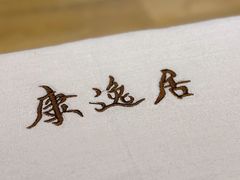 康逸居